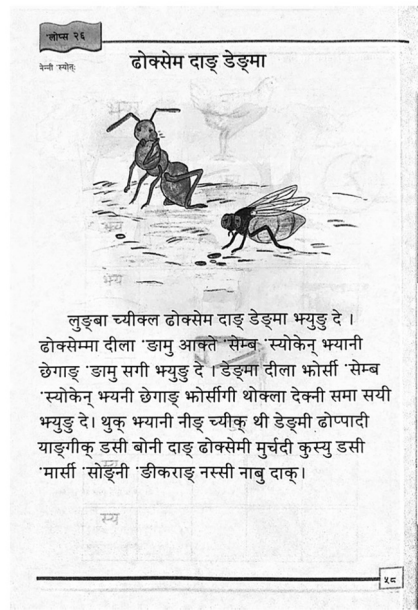 'लोप्स २६
वेन्नी 'स्योत्:
ढोक्सेम दाङ् डेङ्मा
लुङ्बा च्यीक्ल ढोक्सेम दाङ् डेङ्मा भ्युङु दे ।
ढोक्सेम्मा दीला 'ङामु आक्ते 'सेम्ब: 'स्योकेन् भ्यानी
छेगाङ् 'ङामु सगी भ्युङु दे । डेङ्मा दीला भोर्सी 'सेम्ब
'स्योकेन् भ्यनी छेगाङ् भोर्सीगी थोक्ला देक्नी समा सयी
भ्युङु दे। थुक् भ्यानी नीङ् च्यीक् थी डेङ्मी ढोप्पादी
याङ्गीक् डसी बोनी दाङ् ढोक्सेमी मुर्चदी कुस्यु डसी
'मार्सी 'सोङ्नी 'ङीकराङ् नस्सी नाबु दाक्।
५८